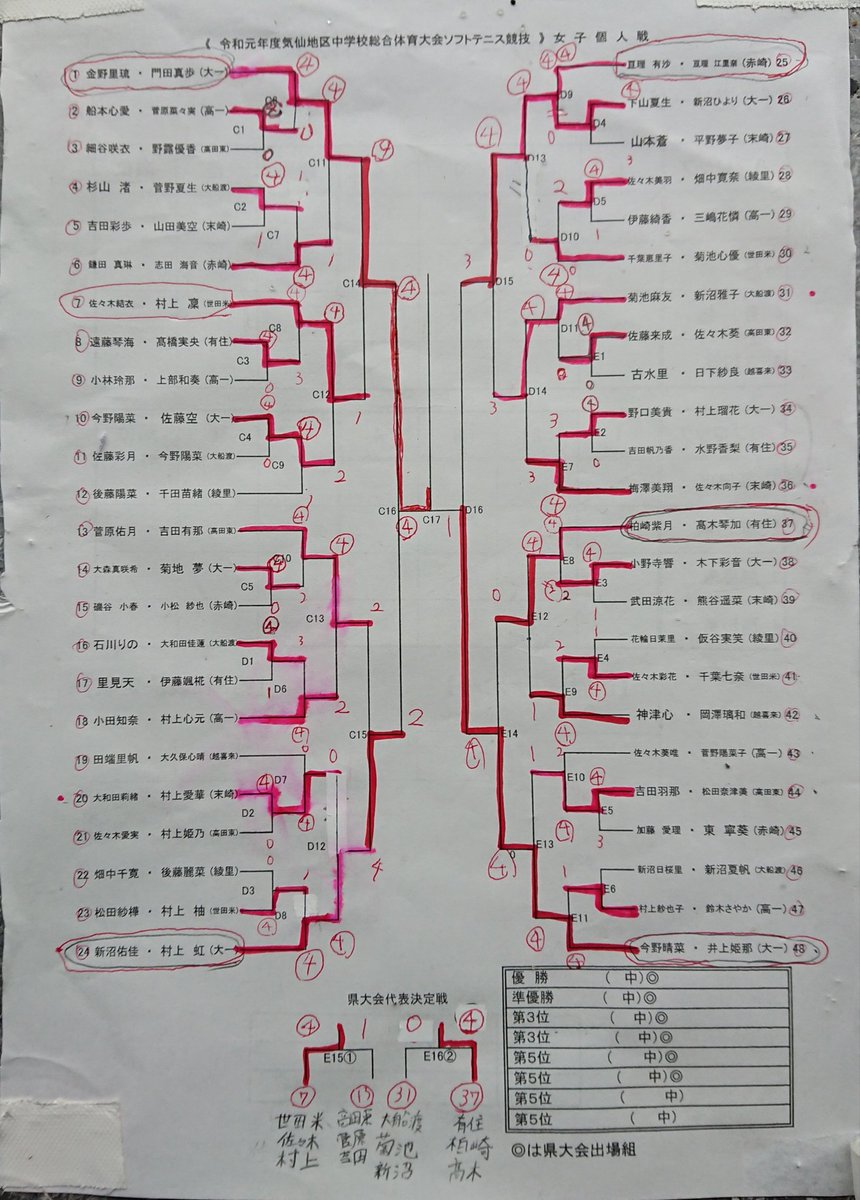 《 令和元年度気仙地区中学校総合体育大会ソフトテニス競技 》女 子 個 人 戦
① 金野里琉 ・ 門田真歩 (大一)
② 船本心愛 ・ 菅原菜々実 (高一)
③ 細谷咲衣 ・ 野露優香 (高田東)
④ 杉山 渚 ・ 菅野夏生 (大船渡)
⑤ 吉田彩歩 ・ 山田美空 (末崎)
⑥ 鎌田 真琳 ・ 志田 海音 (赤崎)
⑦ 佐々木結衣 ・ 村上 凜 (世田米)
8 遠藤琴海 ・ 髙橋実央 (有住)
⑨ 小林玲那 ・ 上部和奏 (高一)
⑩ 今野陽菜 ・ 佐藤空 (大一)
⑪ 佐藤彩月 ・ 今野陽菜 (大船渡)
⑫ 後藤陽菜 ・ 千田苗緒 (綾里)
13 菅原佑月 ・ 吉田有那 (高田東)
⑭ 大森真咲希 ・ 菊地 夢 (大一)
⑮ 磯谷 小春 ・ 小松 紗也 (赤崎)
⑯ 石川りの ・ 大和田佳蓮 (大船渡)
⑰ 里見天 ・ 伊藤颯椛 (有住)
⑱ 小田知奈 ・ 村上心元 (高一)
⑲ 田端里帆 ・ 大久保心晴 (越喜来)
⑳ 大和田莉緒 ・ 村上愛華 (末崎)
㉑ 佐々木愛実 ・ 村上姫乃 (高田東)
㉒ 畑中千寛 ・ 後藤麗菜 (綾里)
㉓ 松田紗樺 ・ 村上 柚 (世田米)
㉔ 新沼佑佳 ・ 村上 虹 (大一)
亘理 有沙 ・ 亘理 江里奈 (赤崎) 25
下山夏生 ・ 新沼ひより (大一) 26
山本蒼 ・ 平野夢子 (末崎) 27
佐々木美羽 ・ 畑中寛奈 (綾里) 28
伊藤綺香 ・ 三嶋花憐 (高一) 29
千葉恵里子 ・ 菊池心優 (世田米) 30
菊池麻友 ・ 新沼雅子 (大船渡) 31
佐藤来成 ・ 佐々木葵 (高田東) 32
古水里 ・ 日下紗良 (越喜来) 33
野口美貴 ・ 村上瑠花 (大一) 34
吉田帆乃香 ・ 水野香梨 (有住) 35
梅澤美翔 ・ 佐々木向子 (末崎) 36
柏崎紫月 ・ 髙木琴加 (有住) 37
小野寺響 ・ 木下彩音 (大一) 38
武田涼花 ・ 熊谷遥菜 (末崎) 39
花輪日茉里 ・ 仮谷実笑 (綾里) 40
佐々木彩花 ・ 千葉七奈 (世田米) 41
神津心 ・ 岡澤璃和 (越喜来) 42
佐々木葵唯 ・ 菅野陽菜子 (高一) 43
吉田羽那 ・ 松田奈津美 (高田東) 44
加藤 愛理 ・ 東 寧葵 (赤崎) 45
新沼日桜里 ・ 新沼夏帆 (大船渡) 46
村上紗也子 ・ 鈴木さやか (高一) 47
今野晴菜 ・ 井上姫那 (大一) 48
C1
C2
C7
C11
C14
C8
C3
C12
C4
C9
C16
C17
C5
C13
D1
D6
C15
D7
D2
D12
D3
D8
D9
D4
D13
D5
D10
D15
D11
E1
D14
E2
E7
D16
E8
E3
E12
E4
E9
E14
E10
E5
E13
E6
E11
県大会代表決定戦
④ 1 0 ④
E15① E16②
⑦ ⑬ ㉛ ㊲
世田米 高田東 大船渡 有住
佐々木 菅原 菊池 柏崎
村上 吉田 新沼 高木
優 勝 ( 中)◎
準優勝 ( 中)◎
第3位 ( 中)◎
第3位 ( 中)◎
第5位 ( 中)◎
第5位 ( 中)◎
第5位 ( 中)
第5位 ( 中)
◎は県大会出場組